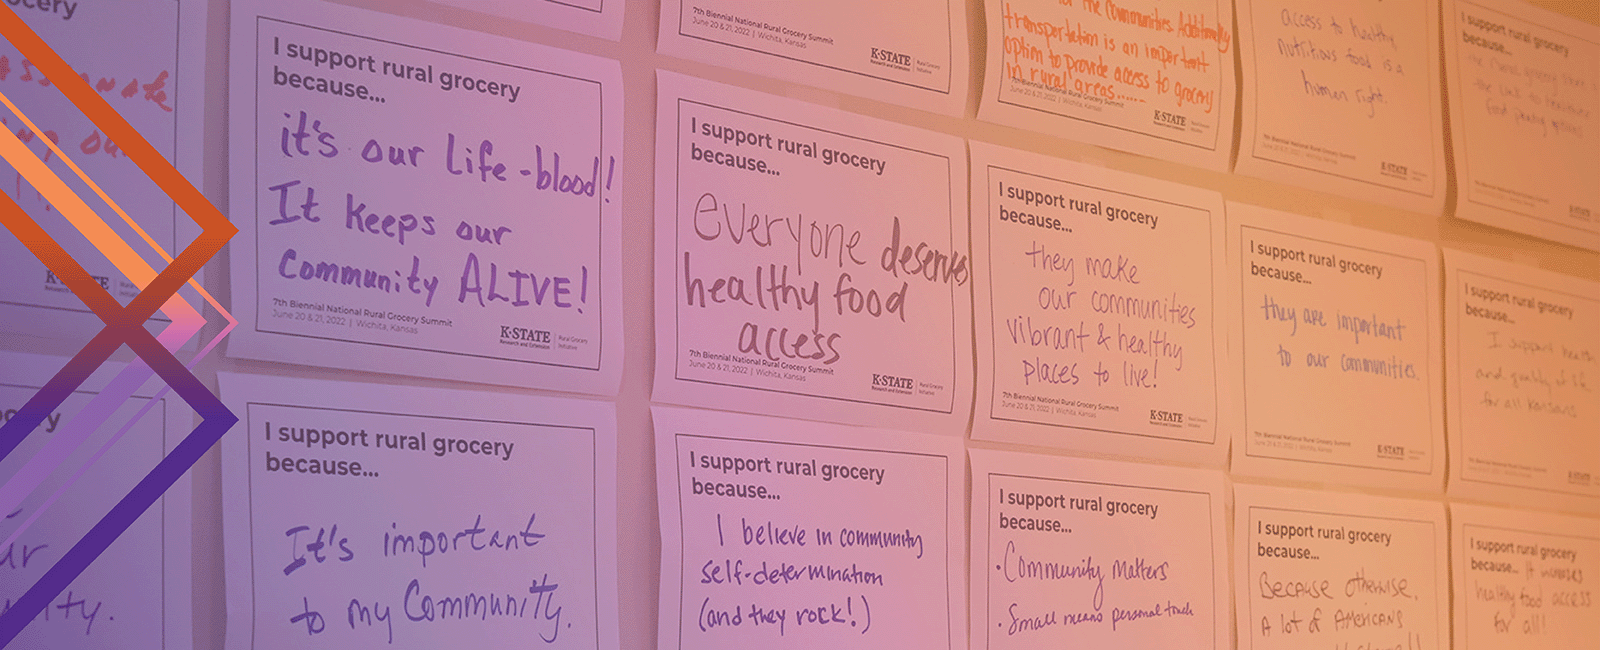 grocery
7th Biennial National Rural Grocery Summit
June 20 & 21, 2022 | Wichita, Kansas
K-STATE
Research and Extension
Rural Grocery
Initiative
for the communities. Additionally
transportation is an important
option to provide access to grocery
in rural areas......
7th Biennial National Rural Grocery Summit
June 20 & 21, 2022 | Wichita, Kansas
K-STATE
access to healthy
nutritious food is a
human right.
7th Biennial National Rural Grocery Summit
June 20 & 21, 2022 | Wichita, Kansas
K-STATE
I support rural grocery
because...
the link to healthier
food
K-STATE
I support rural grocery
because...
it's our Life-blood!
It keeps our
community ALIVE!
7th Biennial National Rural Grocery Summit
June 20 & 21, 2022 | Wichita, Kansas
K-STATE
Research and Extension
Rural Grocery
Initiative
I support rural grocery
because...
everyone deserves
healthy food
access
7th Biennial National Rural Grocery Summit
June 20 & 21, 2022 | Wichita, Kansas
K-STATE
Research and Extension
Rural Grocery
Initiative
I support rural grocery
because...
they make
our communities
vibrant & healthy
places to live!
7th Biennial National Rural Grocery Summit
June 20 & 21, 2022 | Wichita, Kansas
K-STATE
Research and Extension
I support rural grocery
because...
they are important
to our communities.
7th Biennial National Rural Grocery Summit
June 20 & 21, 2022 | Wichita, Kansas
K-STATE
I support rural grocery
because...
I support health
and quality of life
for all Kansans
K-STATE
I support rural grocery
because...
It's important
to my Community.
I support rural grocery
because...
I believe in community
self-determination
(and they rock!)
I support rural grocery
because...
• Community Matters
• Small means personal touch
I support rural grocery
because...
Because otherwise,
A lot of Americans
I support rural grocery
because... It
healthy food access
for all!